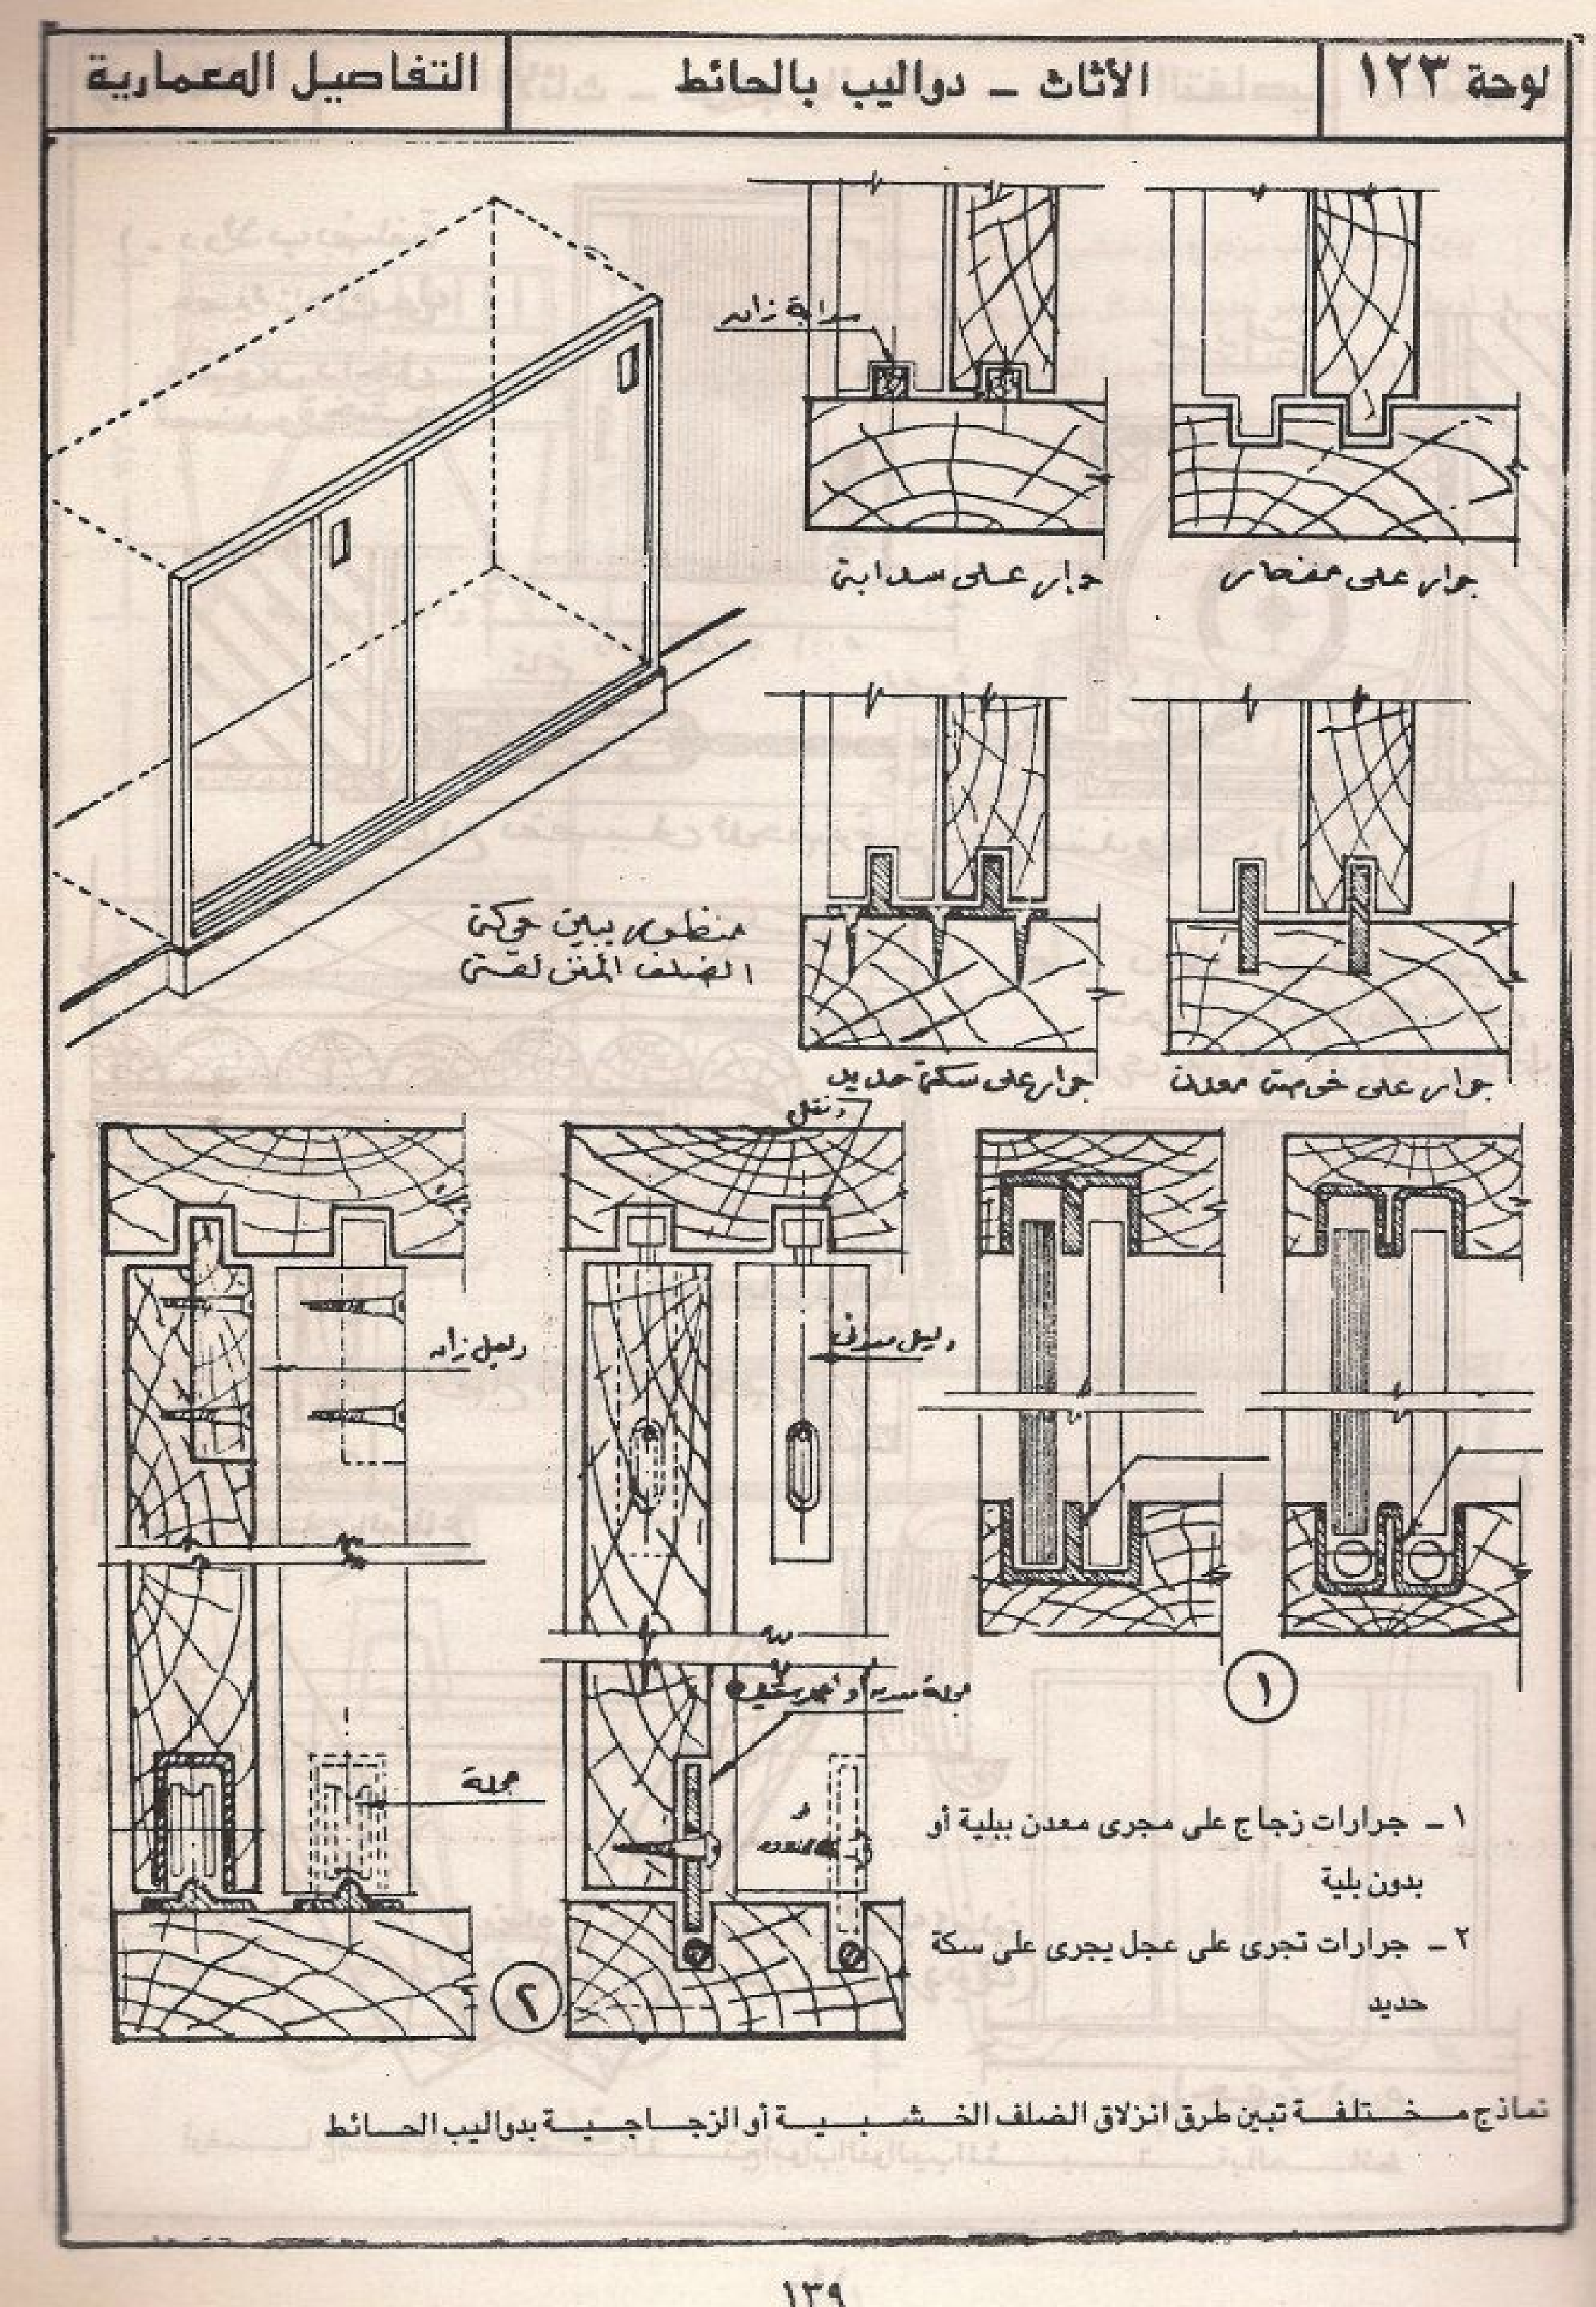 لوحة ١٢٣
الأثاث - دواليب بالحائط
التفاصيل المعمارية
سدابة زان
جرار على سدابة
جرار على مفحار
منظور يبين حركة
الضلف المنزلقة
جرار على سكة حديد
جرار على خوصة معدن
دليل زان
دليل معدنى
عجلة
عجلة
١
٢
١ - جرارات زجاج على مجرى معدن ببلية أو
بدون بلية
٢ - جرارات تجرى على عجل يجرى على سكة
حديد
نماذج مختلفة تبين طرق انزلاق الضلف الخشبية أو الزجاجية بدواليب الحائط
١٣٩